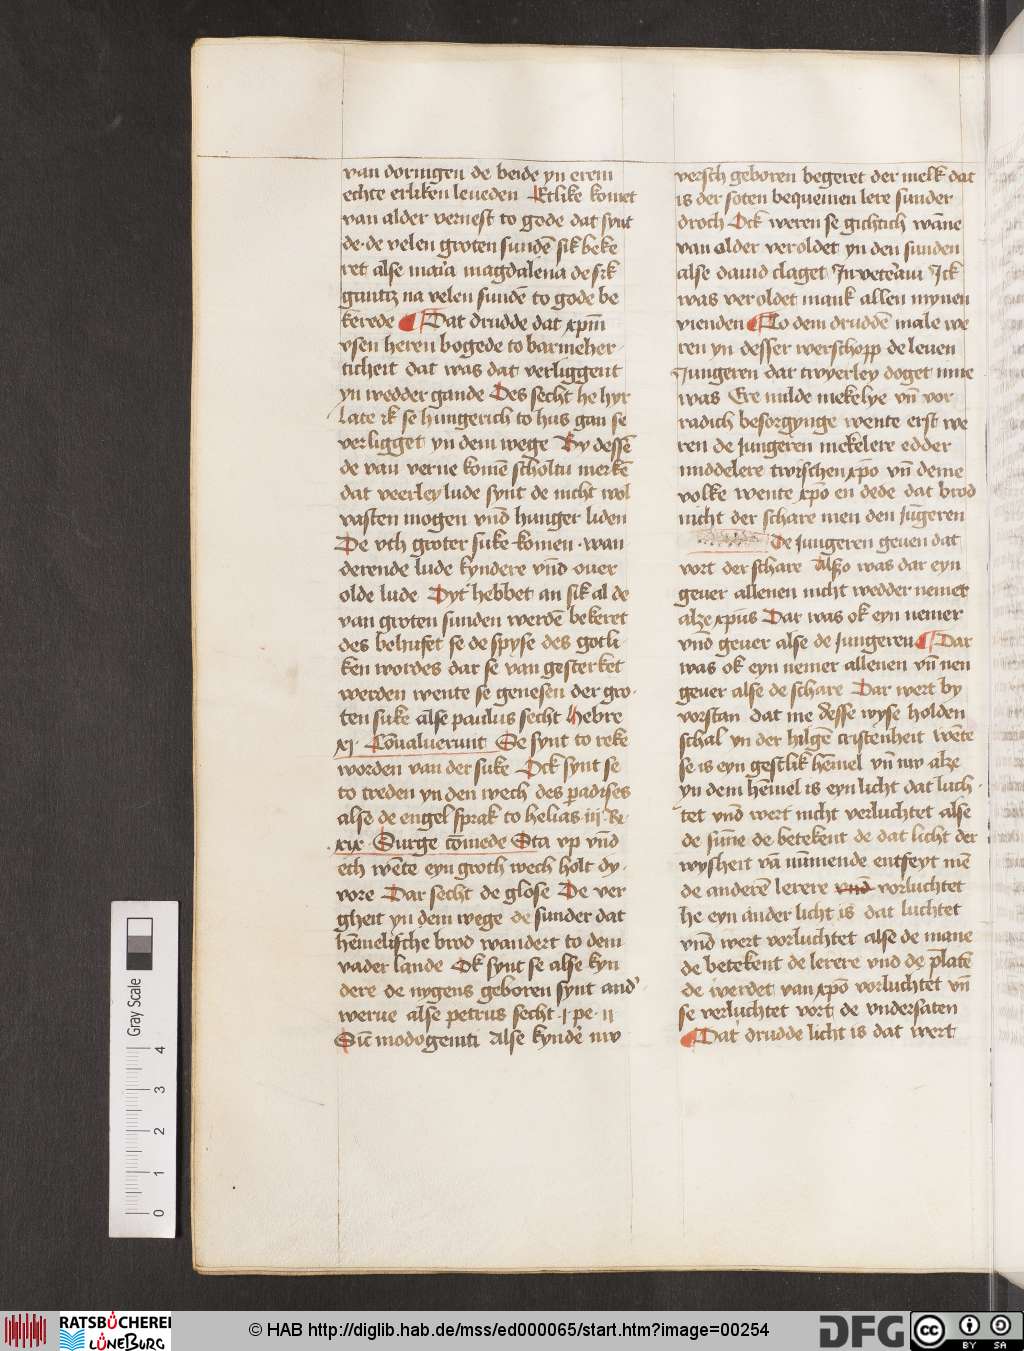 van dornigen de beide yn erem
echte erliken leueden Etlike komet
van alder vernest to gode dat synt
de de velen groten sundē sik beke
ret alse maria magdalena de sik
gantz na velen sundē to gode be
kerede ¶ Dat drudde dat xpm̄
vsen heren bogede to barmeher
ticheit dat was dat verliggent
yn wedder gande Des secht he hyr
Late ik se hungerich to hus gan se
verligget yn dem wege By dessē
de van verne komē scholtu merkē
dat veerley lude synt de nicht wol
vasten mogen vnd hunger liden
De vth groter suke komen wan
derende lude kyndere vnd ouer
olde lude Dyt hebbet an sik al de
van groten sunden werdē bekeret
des behufet se de spyse des gotli
ken wordes dar se van gesterket
werden wente se genesen der gro
ten suke alse paulus secht hebre
xj Cōualuerunt Se synt to reke
worden van der suke Ock synt se
to treden yn den wech des padises
alse de engel sprak to helias iij Re
xix Surge cōmede Sta vp vnd
eth wēte eyn groth wech holt dy
vore Dar secht de glose De ver
gheit yn dem wege de sunder dat
hēmelische brod wandert to dem
vader lande Ok synt se alse kyn
dere de nygens geboren synt and'
werue alse petrus secht i pe ii
Sic̄ modo geniti Alse kynder nw
versch geboren begeret der melk dat
is der soten bequemen lere sunder
droch Ock weren se gichtich wāne
van older veroldet yn den sunden
alse dauid claget Inveteraui Ick
was veroldet mank allen mynen
vienden ¶ To dem druddē male we
ren yn desser werschopp de leuen
Jungeren dar twyerley doget inne
was Ere milde mekelye vn̄ vor
radich besorgynge wente erst we
ren de jungeren mekelere edder
middelere twischen xpō vn̄ deme
volke wente xpō en dede dat brod
nicht der schare men den jūgeren
De jungeren geuen dat
vort der schare Alzo was dar eyn
geuer allenen nicht wedder nemer
alze xpūs Dar was ok eyn nemer
vnd geuer alse de jungeren ¶ Dar
was ok eyn nemer allenen vn̄ nen
geuer alse de schare Dar wert by
vorstan dat me desse wyse holden
schal yn der hilgē cristenheit wēte
se is eyn gestlik hēmel vn̄ nw alze
yn dem hēmel is eyn licht dat luch
tet vnd wert nicht verluchtet alse
de sūne de betekent de dat licht der
wysheit vā nūmende entfeyt mē
de anderē lerere vnd vorluchtet
he eyn ander licht is dat luchtet
vnd wert vorluchtet alse de mane
de betekent de lerere vnd de p̄latē
de werdet van xpō vorluchtet vn̄
se verluchtet vort de vndersaten
¶ Dat drudde licht is dat wert
Gray Scale
4
3
2
1
0
RATSBÜCHEREI
LÜNEBURG
© HAB http://diglib.hab.de/mss/ed000065/start.htm?image=00254
DFG
cc
BY SA